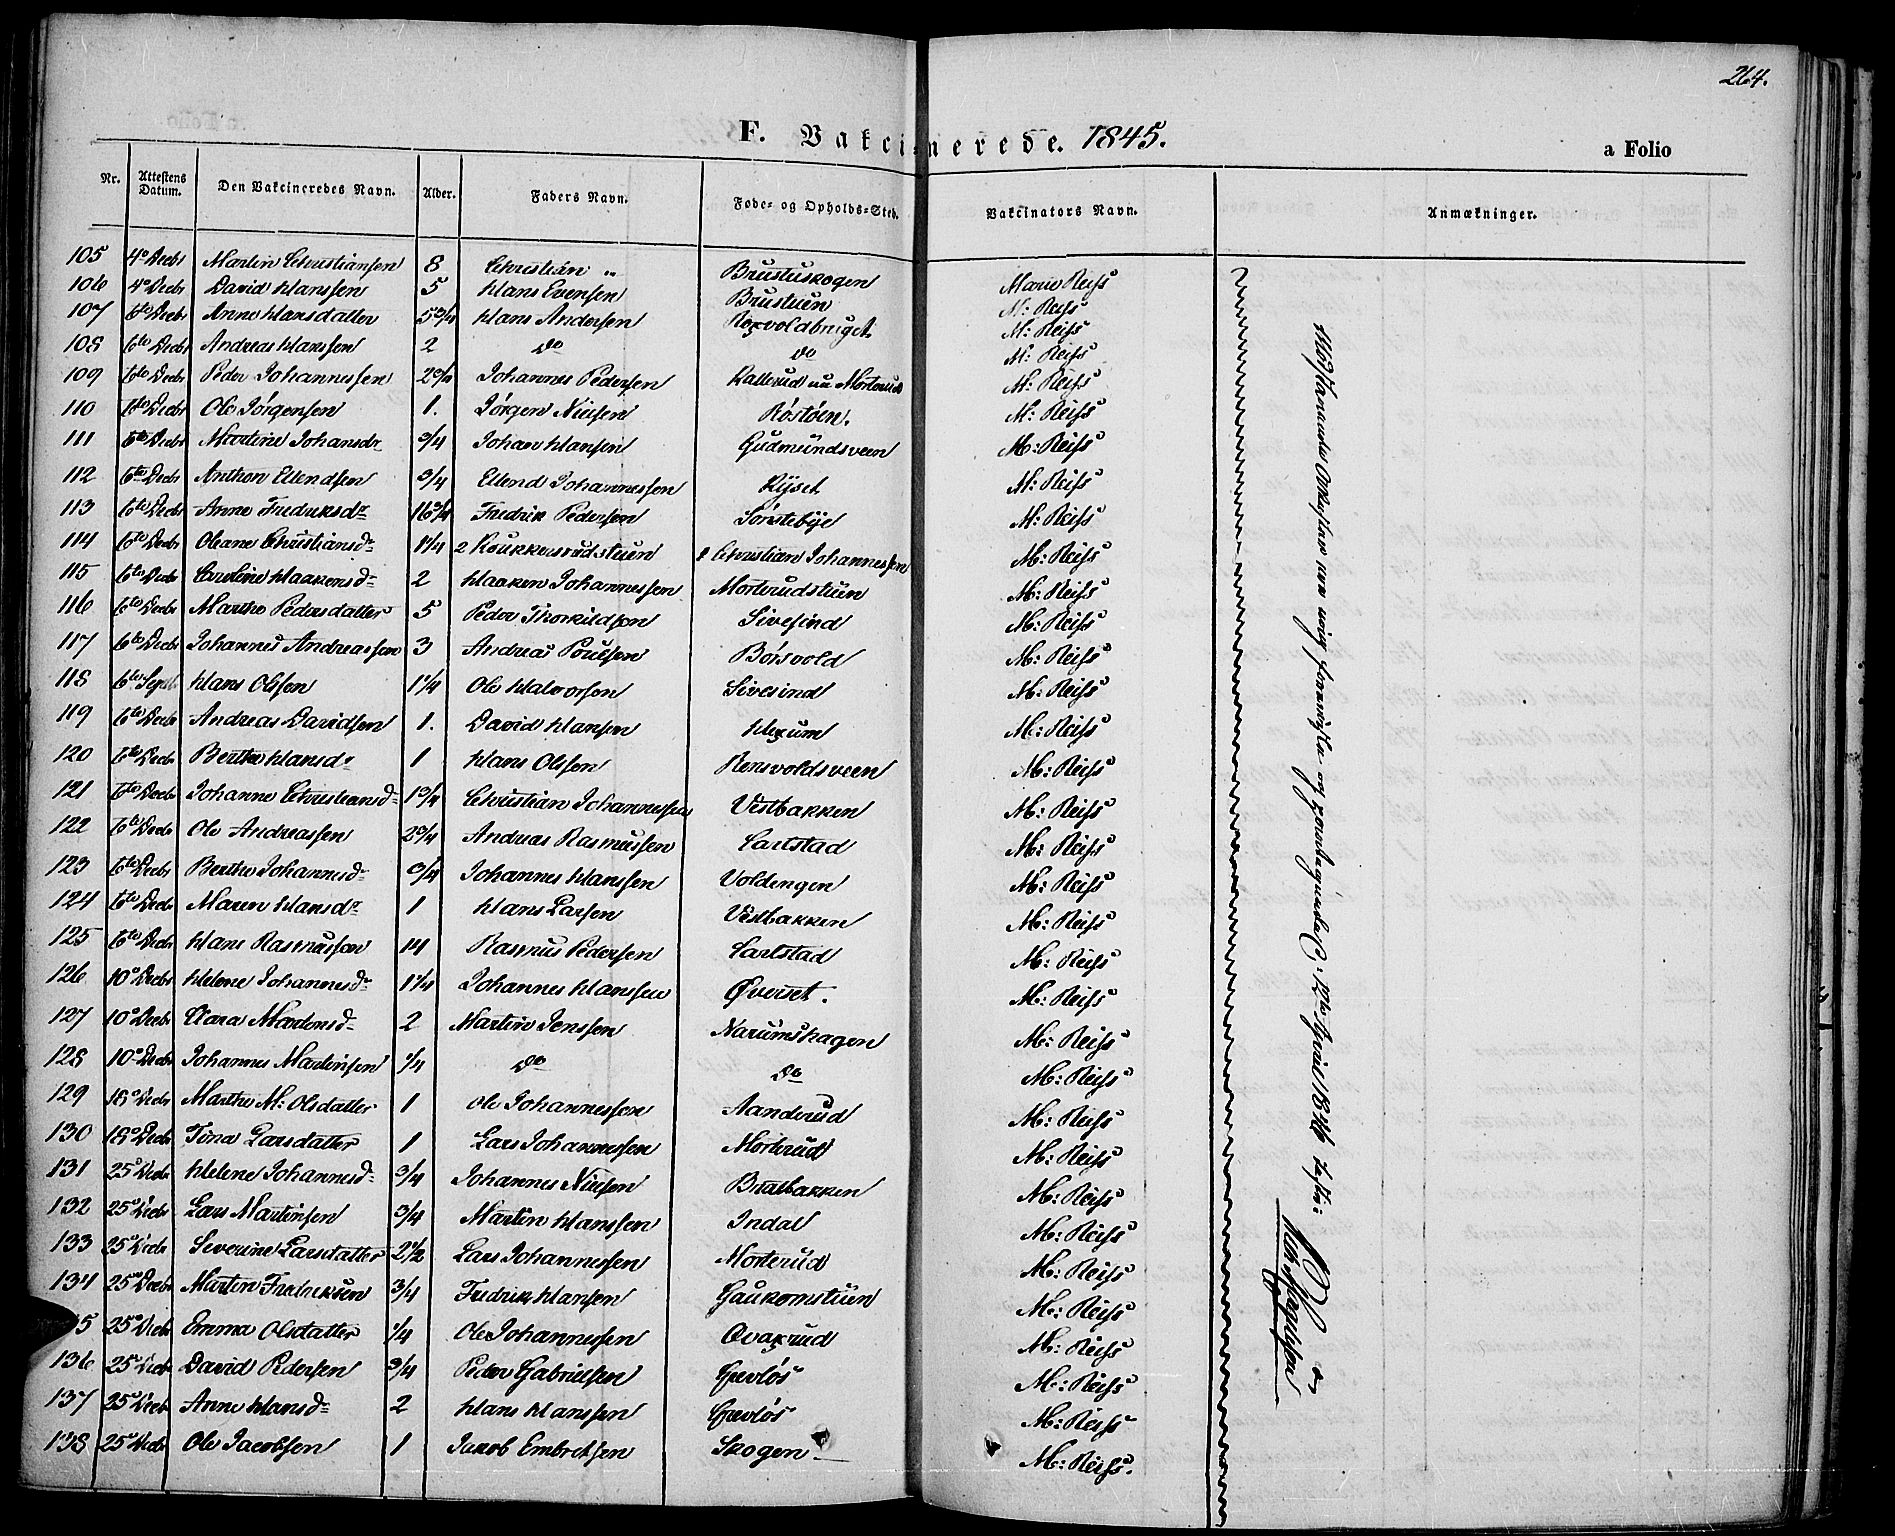 264.
F. Vakcinerede. 1845.
a Folio
Nr. Attestens Datum. Den Vakcineredes Navn. Alder. Faders Navn. Føde- og Opholds-Sted. Vakcinators Navn. Anmærkninger.
105 4de Decbr Martin Christiansen 8 Christian „ Brustuskogen Marie Reiss
106 4de Decbr David Hanssen 5 Hans Evensen Brustuen M: Reiss
107 6te Decbr Anne Hansdatter 5 3/4 Hans Andersen M: Reiss
108 6te Decbr Andreas Hanssen 2 do do M: Reiss
109 6te Decbr Peder Johannessen 2 3/4 Johannes Pedersen Kallerud nu Morterud M: Reiss
110 6te Decbr Ole Jørgensen 1. Jørgen Nielsen Røstøen. M: Reiss
111 6te Decbr Martine Johansdr 3/4 Johan Hansen Gudmundsveen M: Reiss
112 6te Decbr Anthon Ellendsen 3/4 Ellend Johannessen Ryset M: Reiss
113 6te Decbr Anne Fredriksdr 16 3/4 Fredrik Pedersen Sørstebye M: Reiss
114 6te Decbr Oleane Christiansdr 1 1/4 2 Roukkerudstuen 1 Christian Johannessen M: Reiss
115 6te Decbr Caroline Haakensdr 2 Haaken Johannessen Morterudstuen M: Reiss
116 6te Decbr Marthe Pedersdatter 5 Peder Thorkildsen Sivesind M: Reiss
117 6te Decbr Johannes Andreassen 3 Andreas Poulsen Børsvold M: Reiss
118 6te Sept. Hans Olsen 1 1/4 Ole Halvorsen Sivesind M: Reiss
119 6te Decbr Andreas Davidsen 1. David Hansen Hexum M: Reiss
120 6te Decbr Berthe Hansdr 1 Hans Olsen Rensvoldsveen M: Reiss
121 6te Decbr Johanne Christiansdr 1 3/4 Christian Johannessen Vestbakken M: Reiss
122 6te Decbr Ole Andreassen 2 3/4 Andreas Rasmussen Carlstad M: Reiss
123 6te Decbr Berthe Johannesdr 3/4 Johannes Hanssen Voldengen M: Reiss
124 6te Decbr Maren Hansdr 1 Hans Larsen Vestbakken M: Reiss
125 6te Decbr Hans Rasmussen 14 Rasmus Pedersen Carlstad M: Reiss
126 10de Decbr Helene Johannesdr 1 1/4 Johannes Hanssen Øverset. M: Reiss
127 10de Decbr Clara Martinsdr 2 Martin Jenssen Narumshagen M: Reiss
128 10de Decbr Johannes Martinsen 1/4 do do M: Reiss
129 18de Decbr Marthe M: Olsdatter 1 Ole Johannessen Aanderud M: Reiss
130 18de Decbr Tina Larsdatter 1 Lars Johannessen Morterud M: Reiss
131 25de Decbr Helene Johannesdr 3/4 Johannes Nielsen Bratbakken M: Reiss
132 25de Decbr Lars Martinsen 3/4 Martin Hanssen Indal M: Reiss
133 25de Decbr Severine Larsdatter 2 1/2 Lars Johannessen Morterud M: Reiss
134 25de Decbr Martin Fredriksen 3/4 Fredrik Hansen Gaukomstuen M: Reiss
35 25de Decbr Emma Olsdatter 1/4 Ole Johannessen Qvaxrud M: Reiss
136 25de Decbr David Pedersen 3/4 Peder Gabrielsen Gjevløs M: Reiss
137 25de Decbr Anne Hansdr 2 Hans Hanssen Gjevløs M: Reiss
138 25de Decbr Ole Jacobsen 1 Jakob Embretsen Skogen M: Reiss.
April 1846